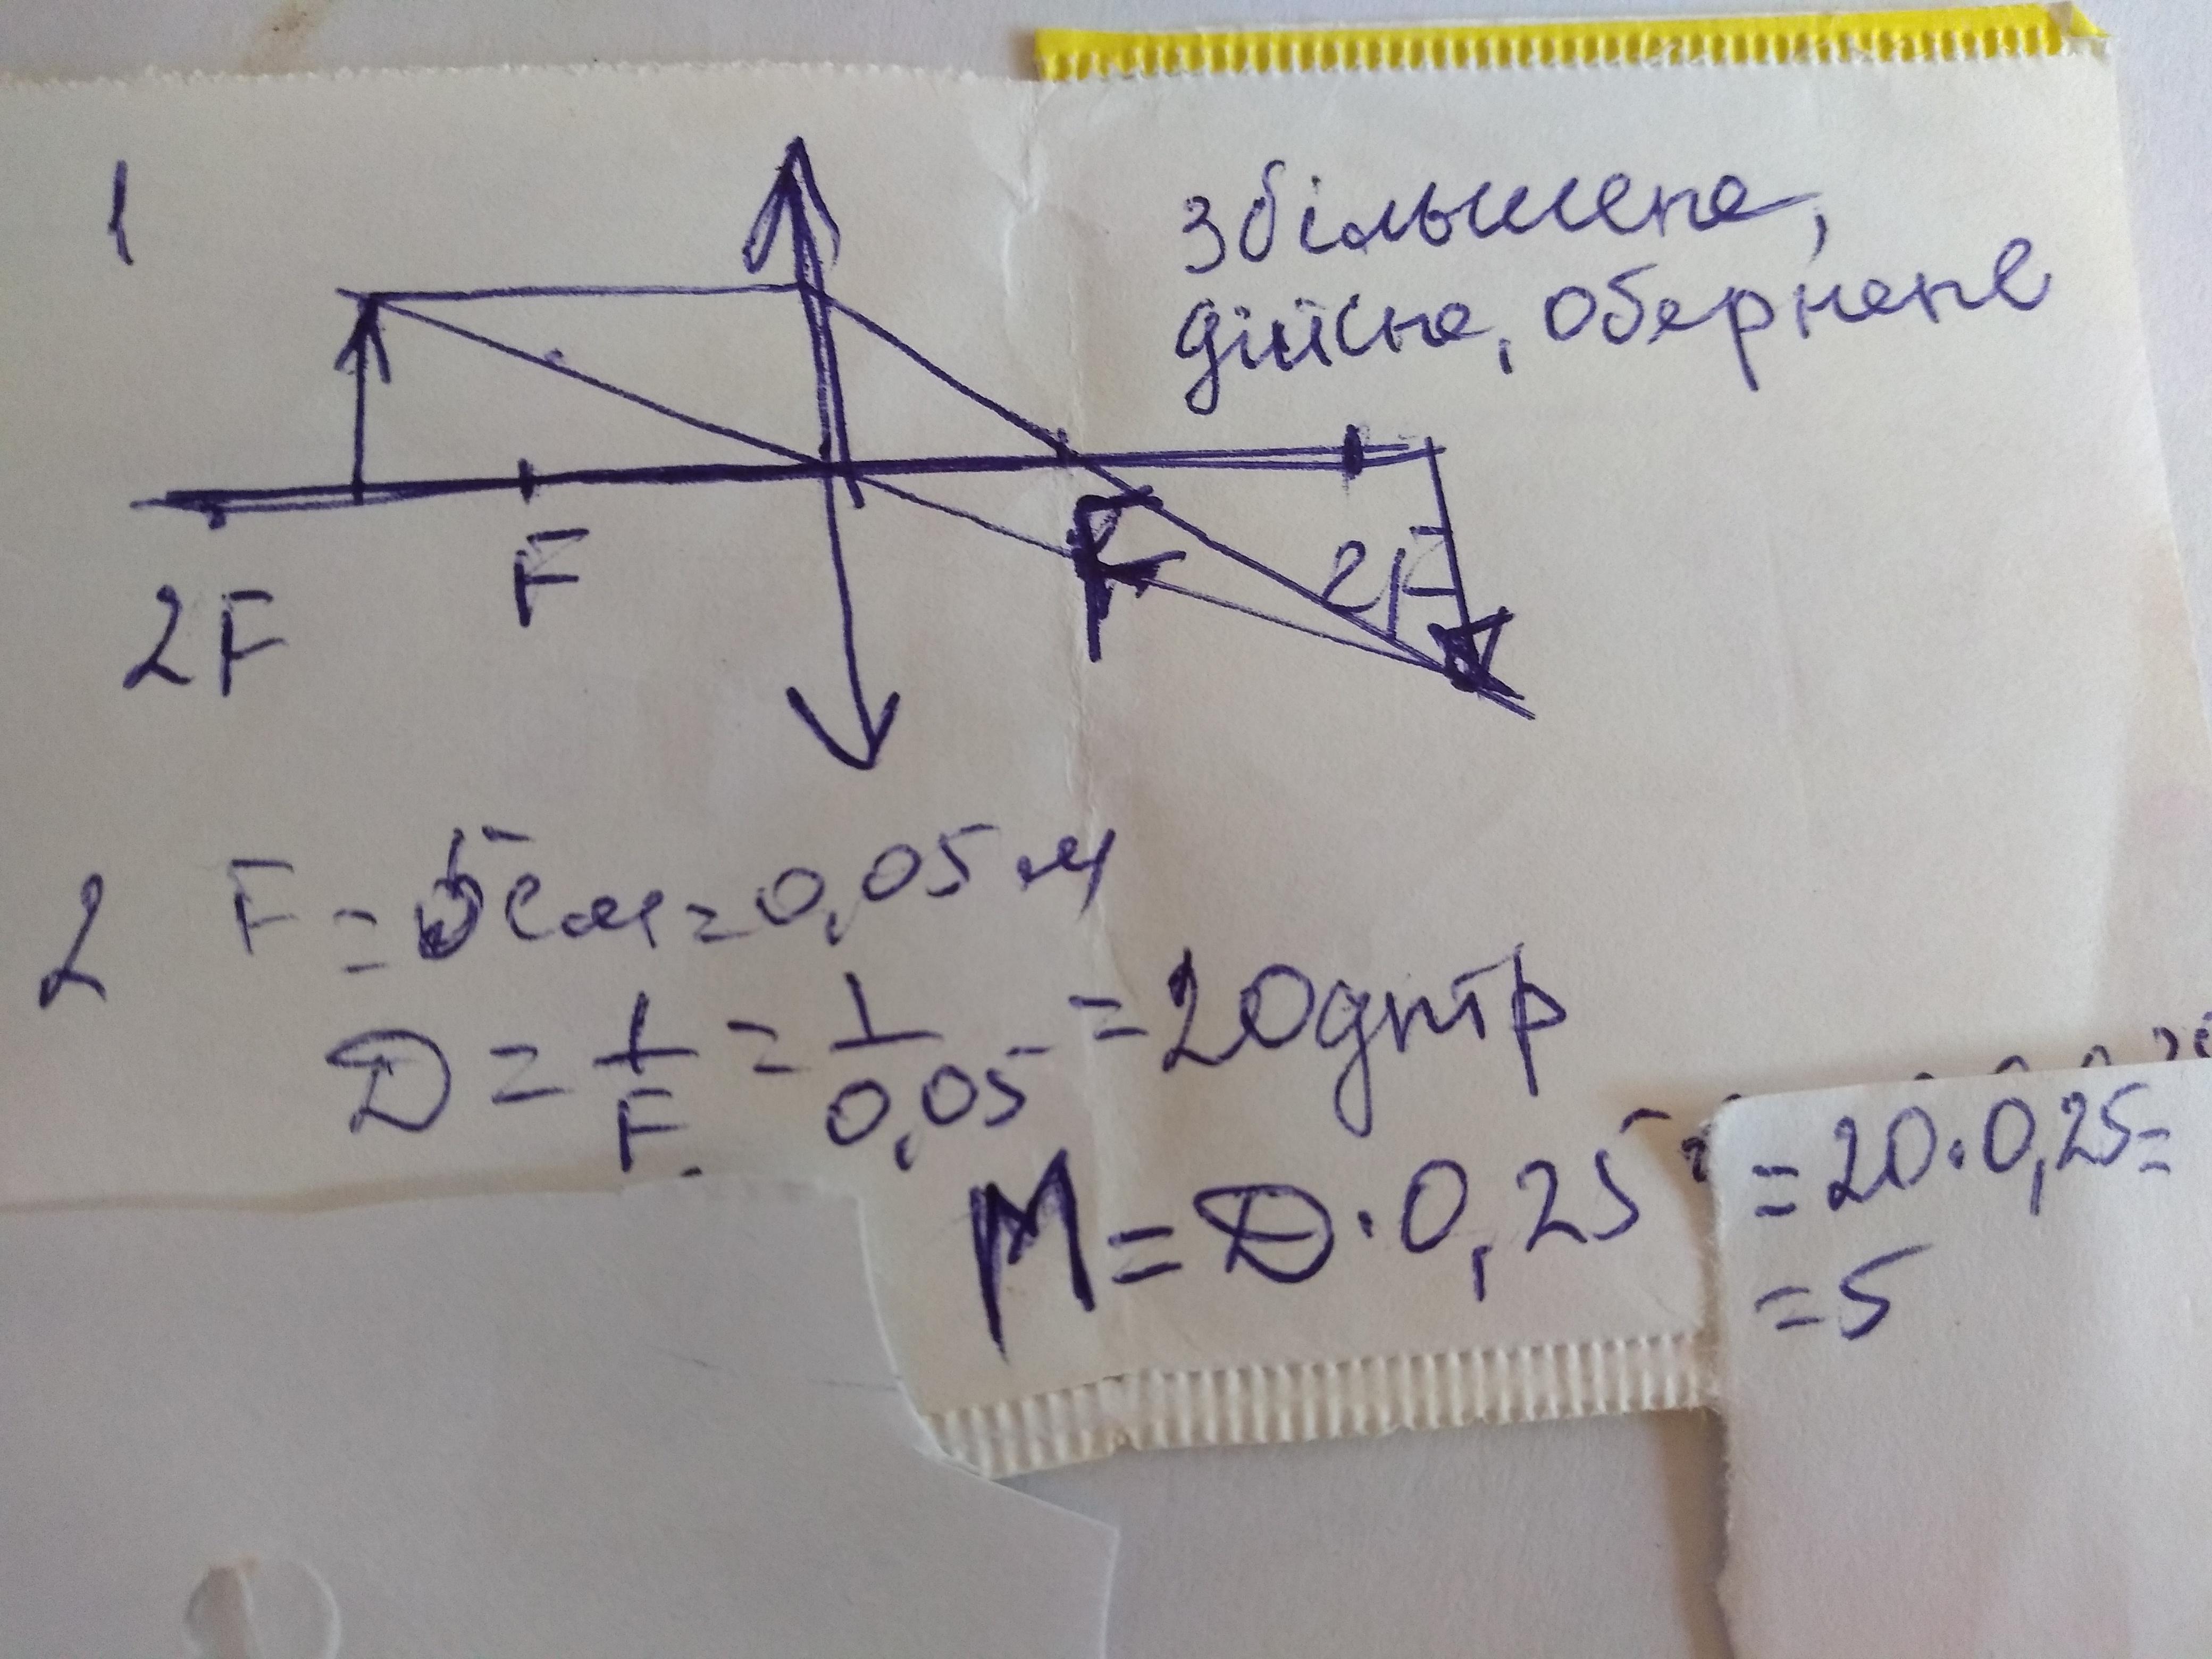 1
збільшене,
дійсне, обернене
2F F F 2F
2 F = 5см = 0,05 м
D = 1/F = 1/0,05 = 20 дптр
M = D · 0,25 = 20 · 0,25 =
= 5